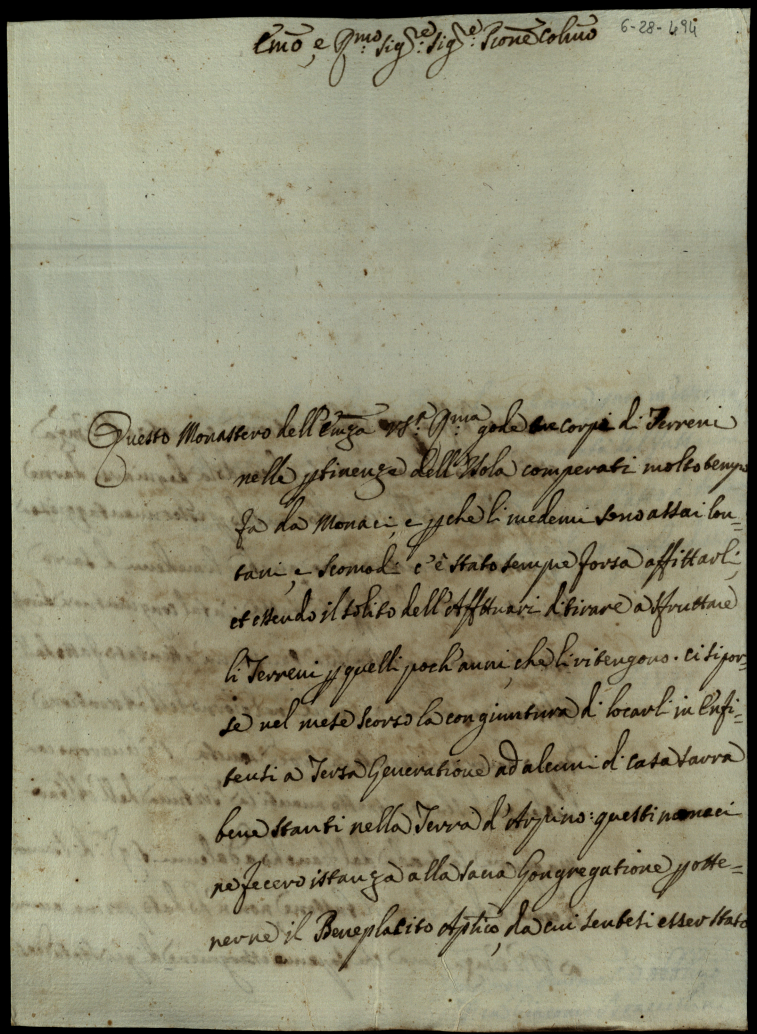 Emo, e Rmo Sig:re Sig:re Pione Colmo
6-28-494
Questo Monastero dell'Emza Vs:a Rma gode tre corpi di Terreni
nelle ptinenze dell'Isola comperati molto tempo
fa da Monaci, e pche li medemi sono assai lon=
tani, e scomodi c'è stato sempre forza affittarli,
et essendo il solito dell'Affittuarj di tirare a sfruttare
li Terreni p quelli poch'anni, che li ritengono. ci si por=
se nel mese scorso la congiuntura di locarli in Enfi=
teusi a Terza Generatione ad alcuni di casa Sarra
bene stanti nella Terra d'Arpino: questi monaci
ne fecero istanza alla Sacra Congregatione p otte=
nerne il Beneplacito Aplico, da cui sentesi esser stato